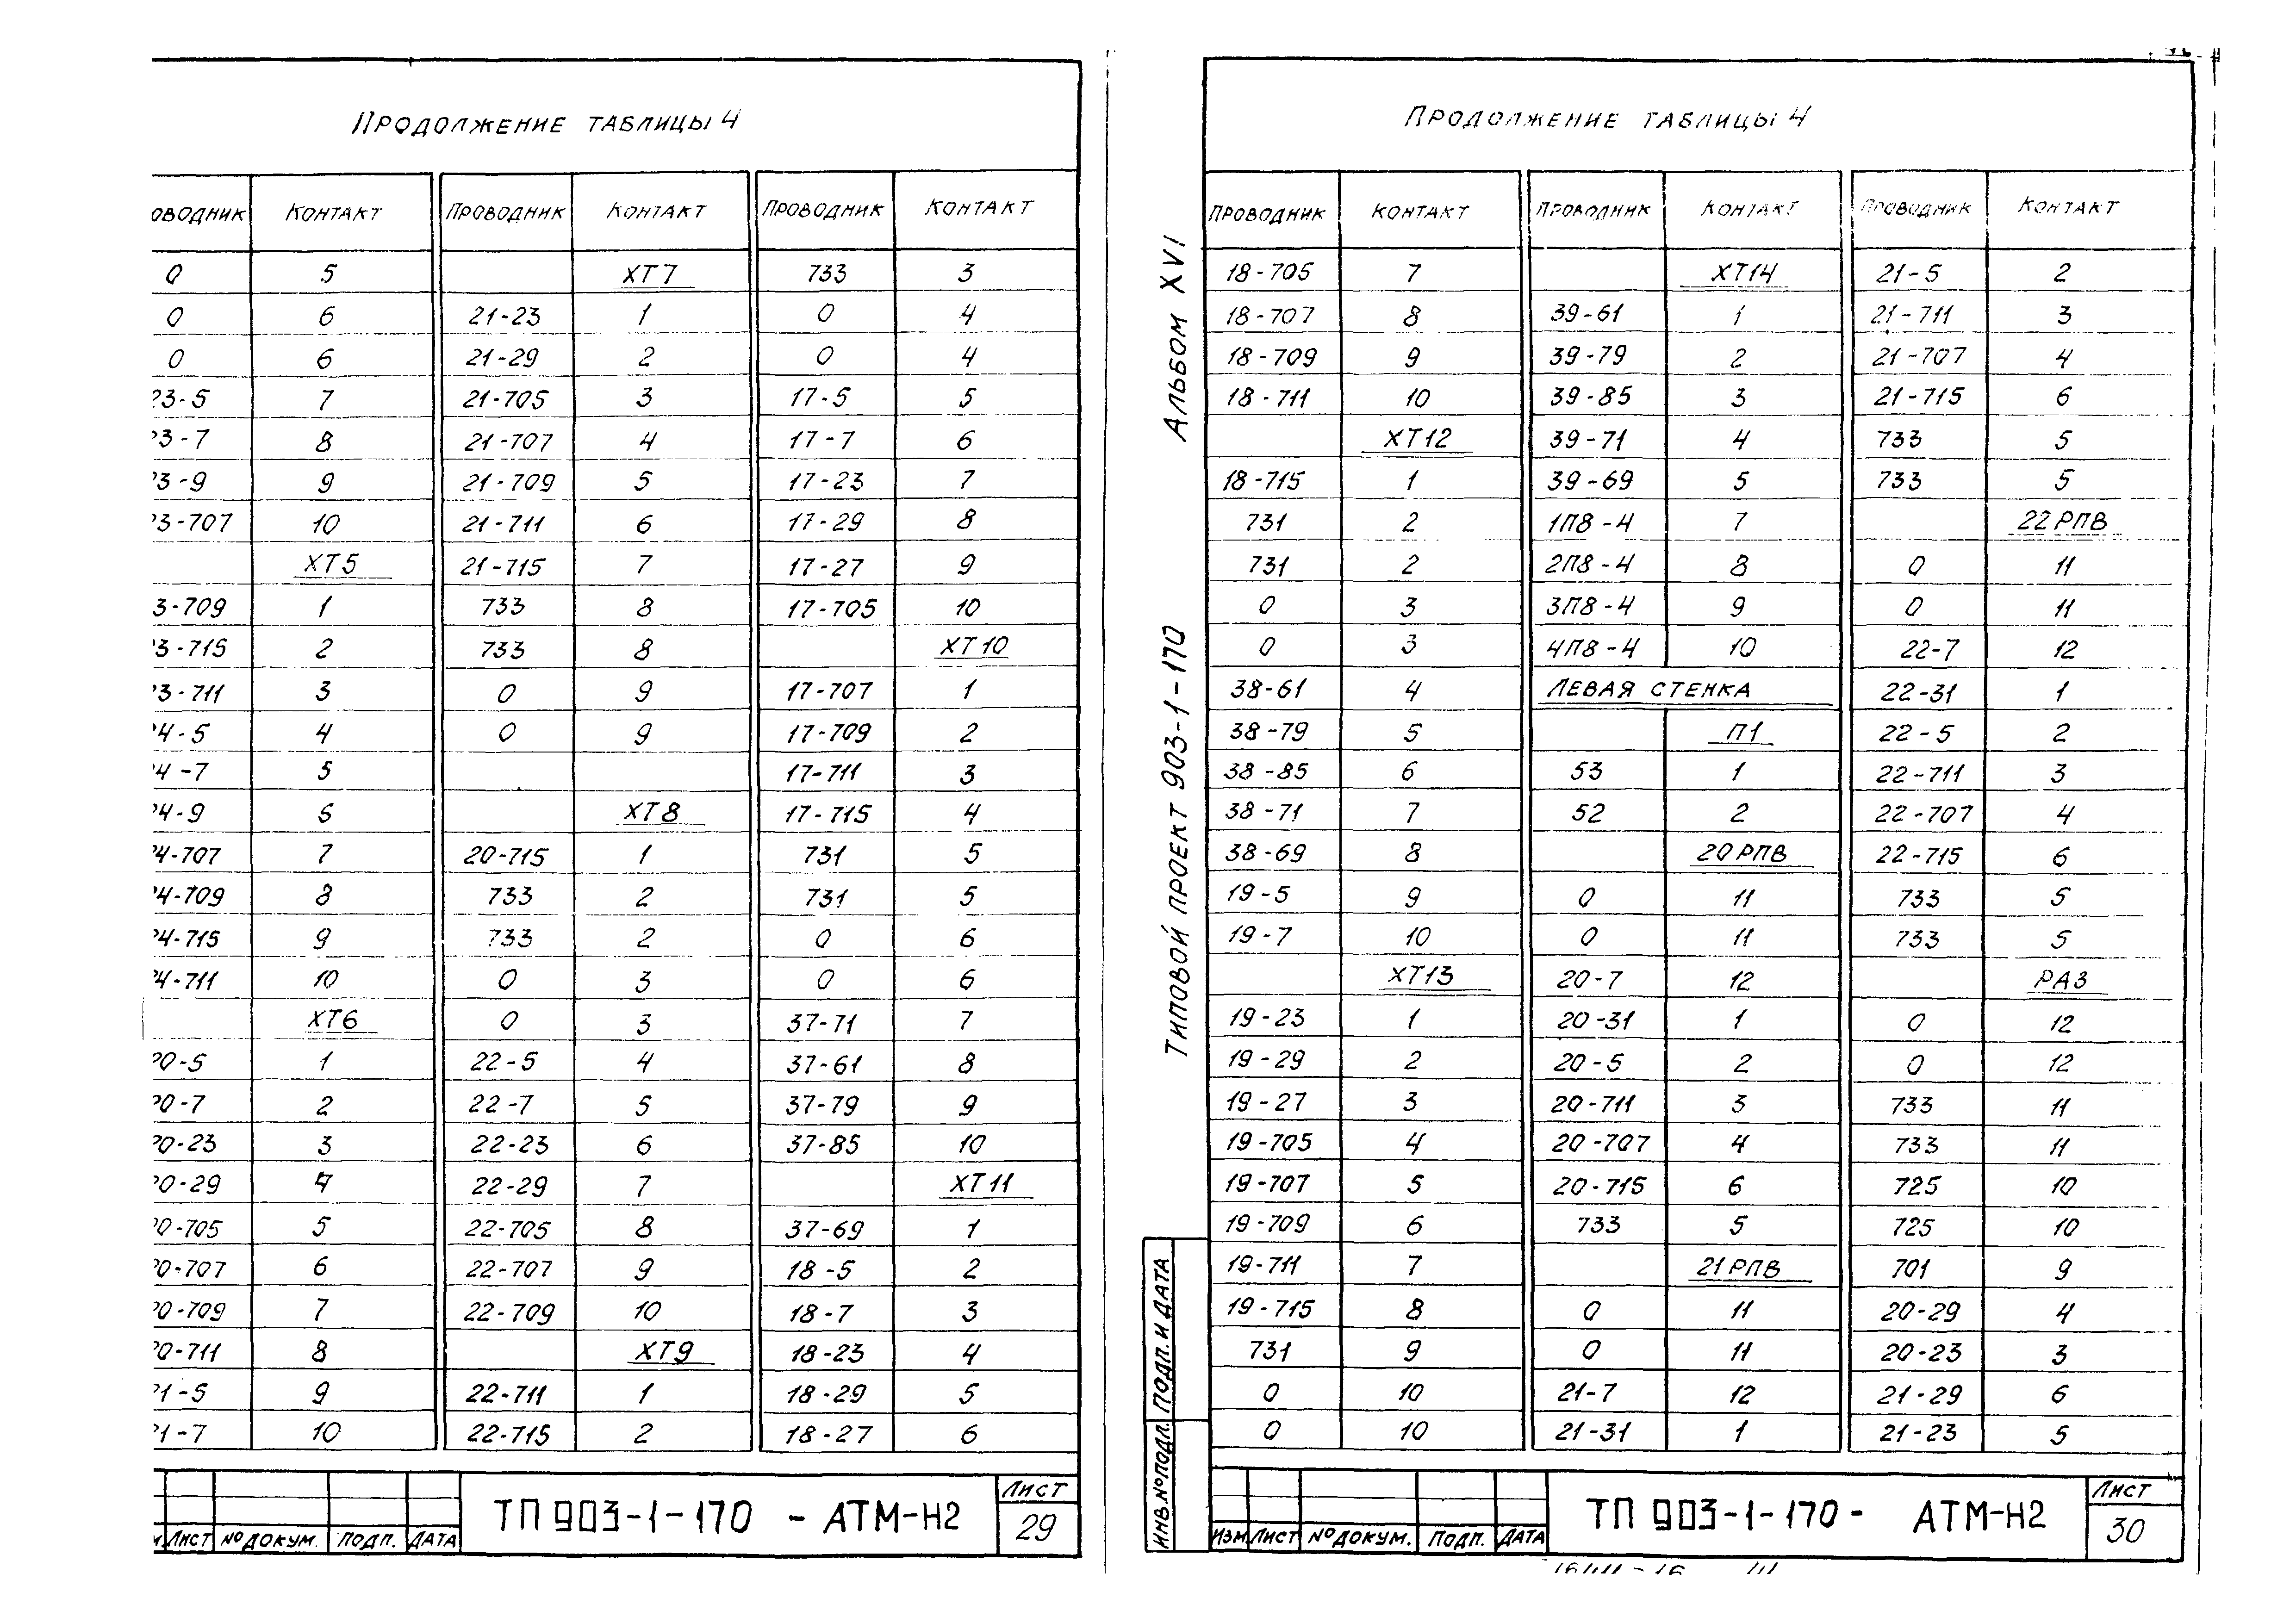 Продолжение таблицы 4
оводник Контакт Проводник Контакт Проводник Контакт
0 5 ХТ7 733 3
0 6 21-23 1 0 4
0 6 21-29 2 0 4
23-5 7 21-705 3 17-5 5
23-7 8 21-707 4 17-7 6
23-9 9 21-709 5 17-23 7
23-707 10 21-711 6 17-29 8
ХТ5 21-715 7 17-27 9
3-709 1 733 8 17-705 10
23-715 2 733 8 ХТ10
23-711 3 0 9 17-707 1
24-5 4 0 9 17-709 2
24-7 5 17-711 3
24-9 6 ХТ8 17-715 4
24-707 7 20-715 1 731 5
24-709 8 733 2 731 5
24-715 9 733 2 0 6
24-711 10 0 3 0 6
ХТ6 0 3 37-71 7
20-5 1 22-5 4 37-61 8
20-7 2 22-7 5 37-79 9
20-23 3 22-23 6 37-85 10
20-29 4 22-29 7 ХТ11
20-705 5 22-705 8 37-69 1
20-707 6 22-707 9 18-5 2
20-709 7 22-709 10 18-7 3
20-711 8 ХТ9 18-23 4
21-5 9 22-711 1 18-29 5
21-7 10 22-715 2 18-27 6
ТП 903-1-170 - АТМ-Н2
Лист
29
м Лист № докум. Подп. Дата
Альбом XVI
Типовой проект 903-1-170
Подп. и дата
Инв.№ подл.
Продолжение таблицы 4
Проводник Контакт Проводник Контакт Проводник Контакт
18-705 7 ХТ14 21-5 2
18-707 8 39-61 1 21-711 3
18-709 9 39-79 2 21-707 4
18-711 10 39-85 3 21-715 6
ХТ12 39-71 4 733 5
18-715 1 39-69 5 733 5
731 2 1П8-4 7 22РПВ
731 2 2П8-4 8 0 11
0 3 3П8-4 9 0 11
0 3 4П8-4 10 22-7 12
38-61 4 Левая стенка 22-31 1
38-79 5 П1 22-5 2
38-85 6 53 1 22-711 3
38-71 7 52 2 22-707 4
38-69 8 20РПВ 22-715 6
19-5 9 0 11 733 5
19-7 10 0 11 733 5
ХТ13 20-7 12 РА3
19-23 1 20-31 1 0 12
19-29 2 20-5 2 0 12
19-27 3 20-711 3 733 11
19-705 4 20-707 4 733 11
19-707 5 20-715 6 725 10
19-709 6 733 5 725 10
19-711 7 21РПВ 701 9
19-715 8 0 11 20-29 4
731 9 0 11 20-23 3
0 10 21-7 12 21-29 6
0 10 21-31 1 21-23 5
ТП 903-1-170- АТМ-Н2
Лист
30
Изм Лист № докум. Подп. Дата